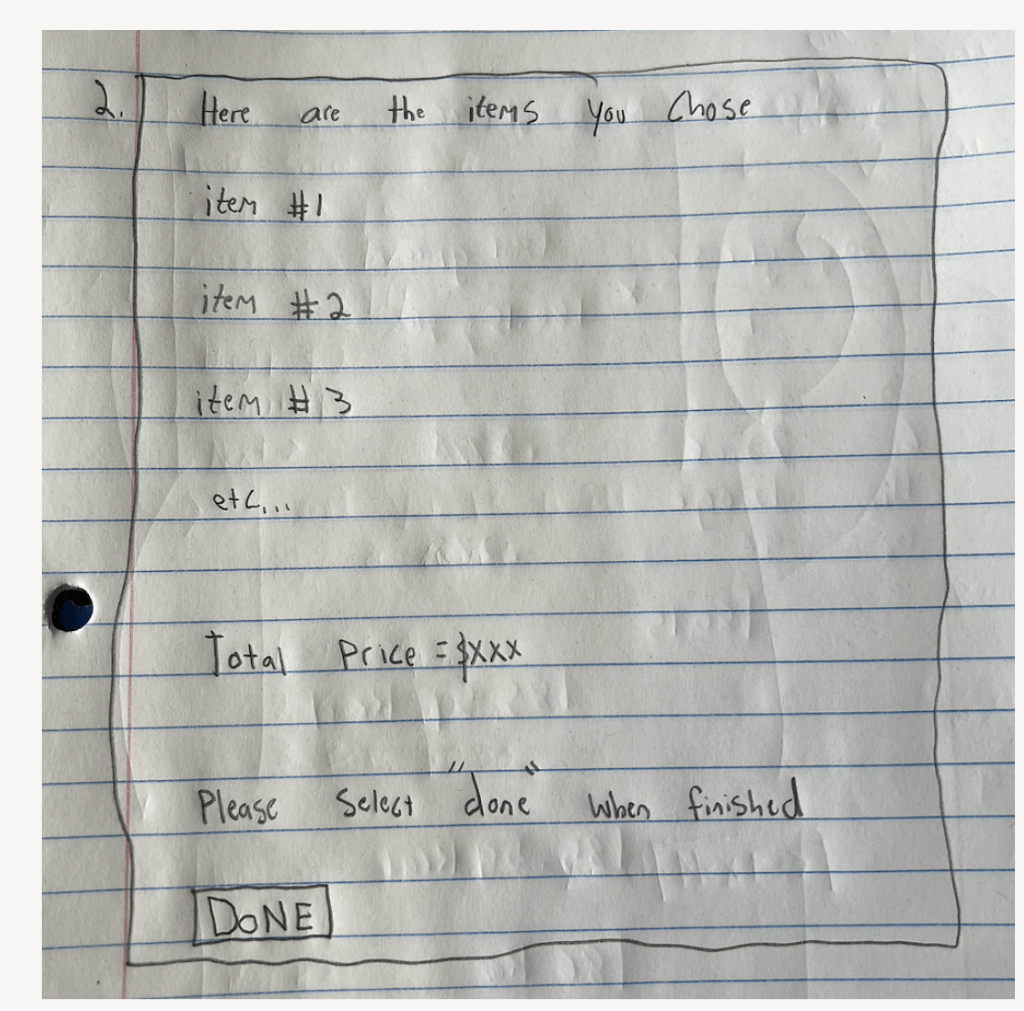 2. Here are the items you chose
item #1
item #2
item #3
etc...
Total Price = $XXX
Please Select "done" when finished
DONE